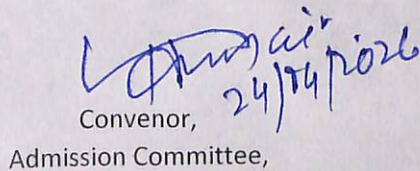 24/04/2026
Convenor,
Admission Committee,